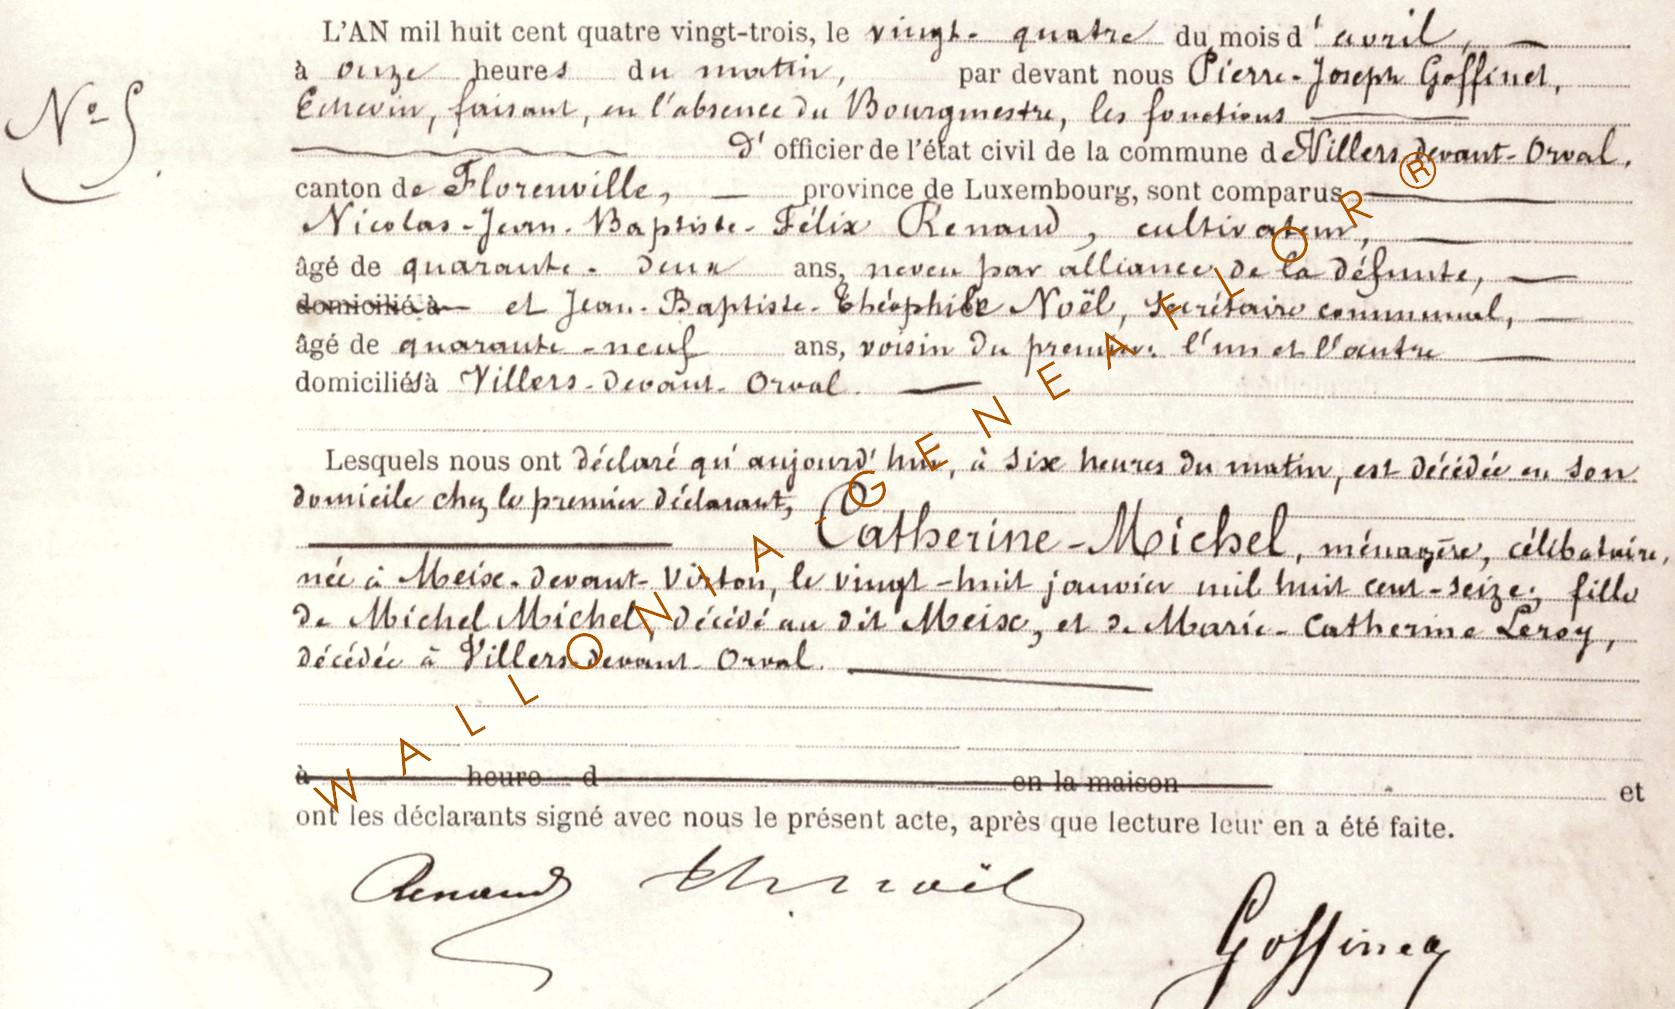 L'AN mil huit cent quatre vingt-trois, le vingt-quatre du mois d'avril,
à onze heures du matin, par devant nous Pierre-Joseph Goffinet,
Echevin, faisant, en l'absence du Bourgmestre, les fonctions
N° 5.
d'officier de l'état civil de la commune de Villers-devant-Orval,
canton de Florenville, province de Luxembourg, sont comparus
Nicolas-Jean-Baptiste-Félix Renaud, cultivateur,
âgé de quarante-deux ans, neveu par alliance de la défunte,
domicilié à et Jean-Baptiste-Théophile Noël, secrétaire communal,
âgé de quarante-neuf ans, voisin du premier: l'un et l'autre
domiciliés à Villers-devant-Orval.
Lesquels nous ont déclaré qu'aujourd'hui, à six heures du matin, est décédée en son
domicile chez le premier déclarant,
Catherine-Michel, ménagère, célibataire,
née à Meix-devant-Virton, le vingt-huit janvier mil huit cent-seize; fille
de Michel Michel, décédé au dit Meix, et de Marie-Catherine Leroy,
décédée à Villers-devant-Orval.
à heure d en la maison et
ont les déclarants signé avec nous le présent acte, après que lecture leur en a été faite.
Renaud Th Noël
Goffinet
WALLONIA-GENEAFLOR®